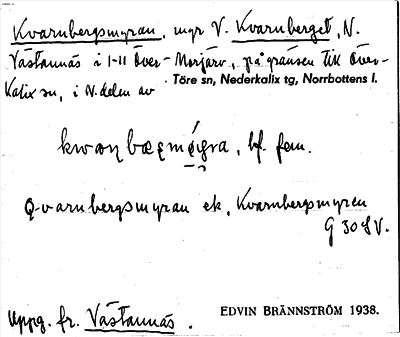 Kvarnbergsmyran, myr V. Kvarnberget, N.
Västannäs å 1-11 Över-Morjärv, på gränsen till Över-
Kalix sn, i N. delen av Töre sn, Nederkalix tg, Norrbottens l.
bf. fem.
Qvarnbergsmyran ek. Kvarnbergsmyren
G 30 SV.
Uppg. fr. Västannäs.
EDVIN BRÄNNSTRÖM 1938.